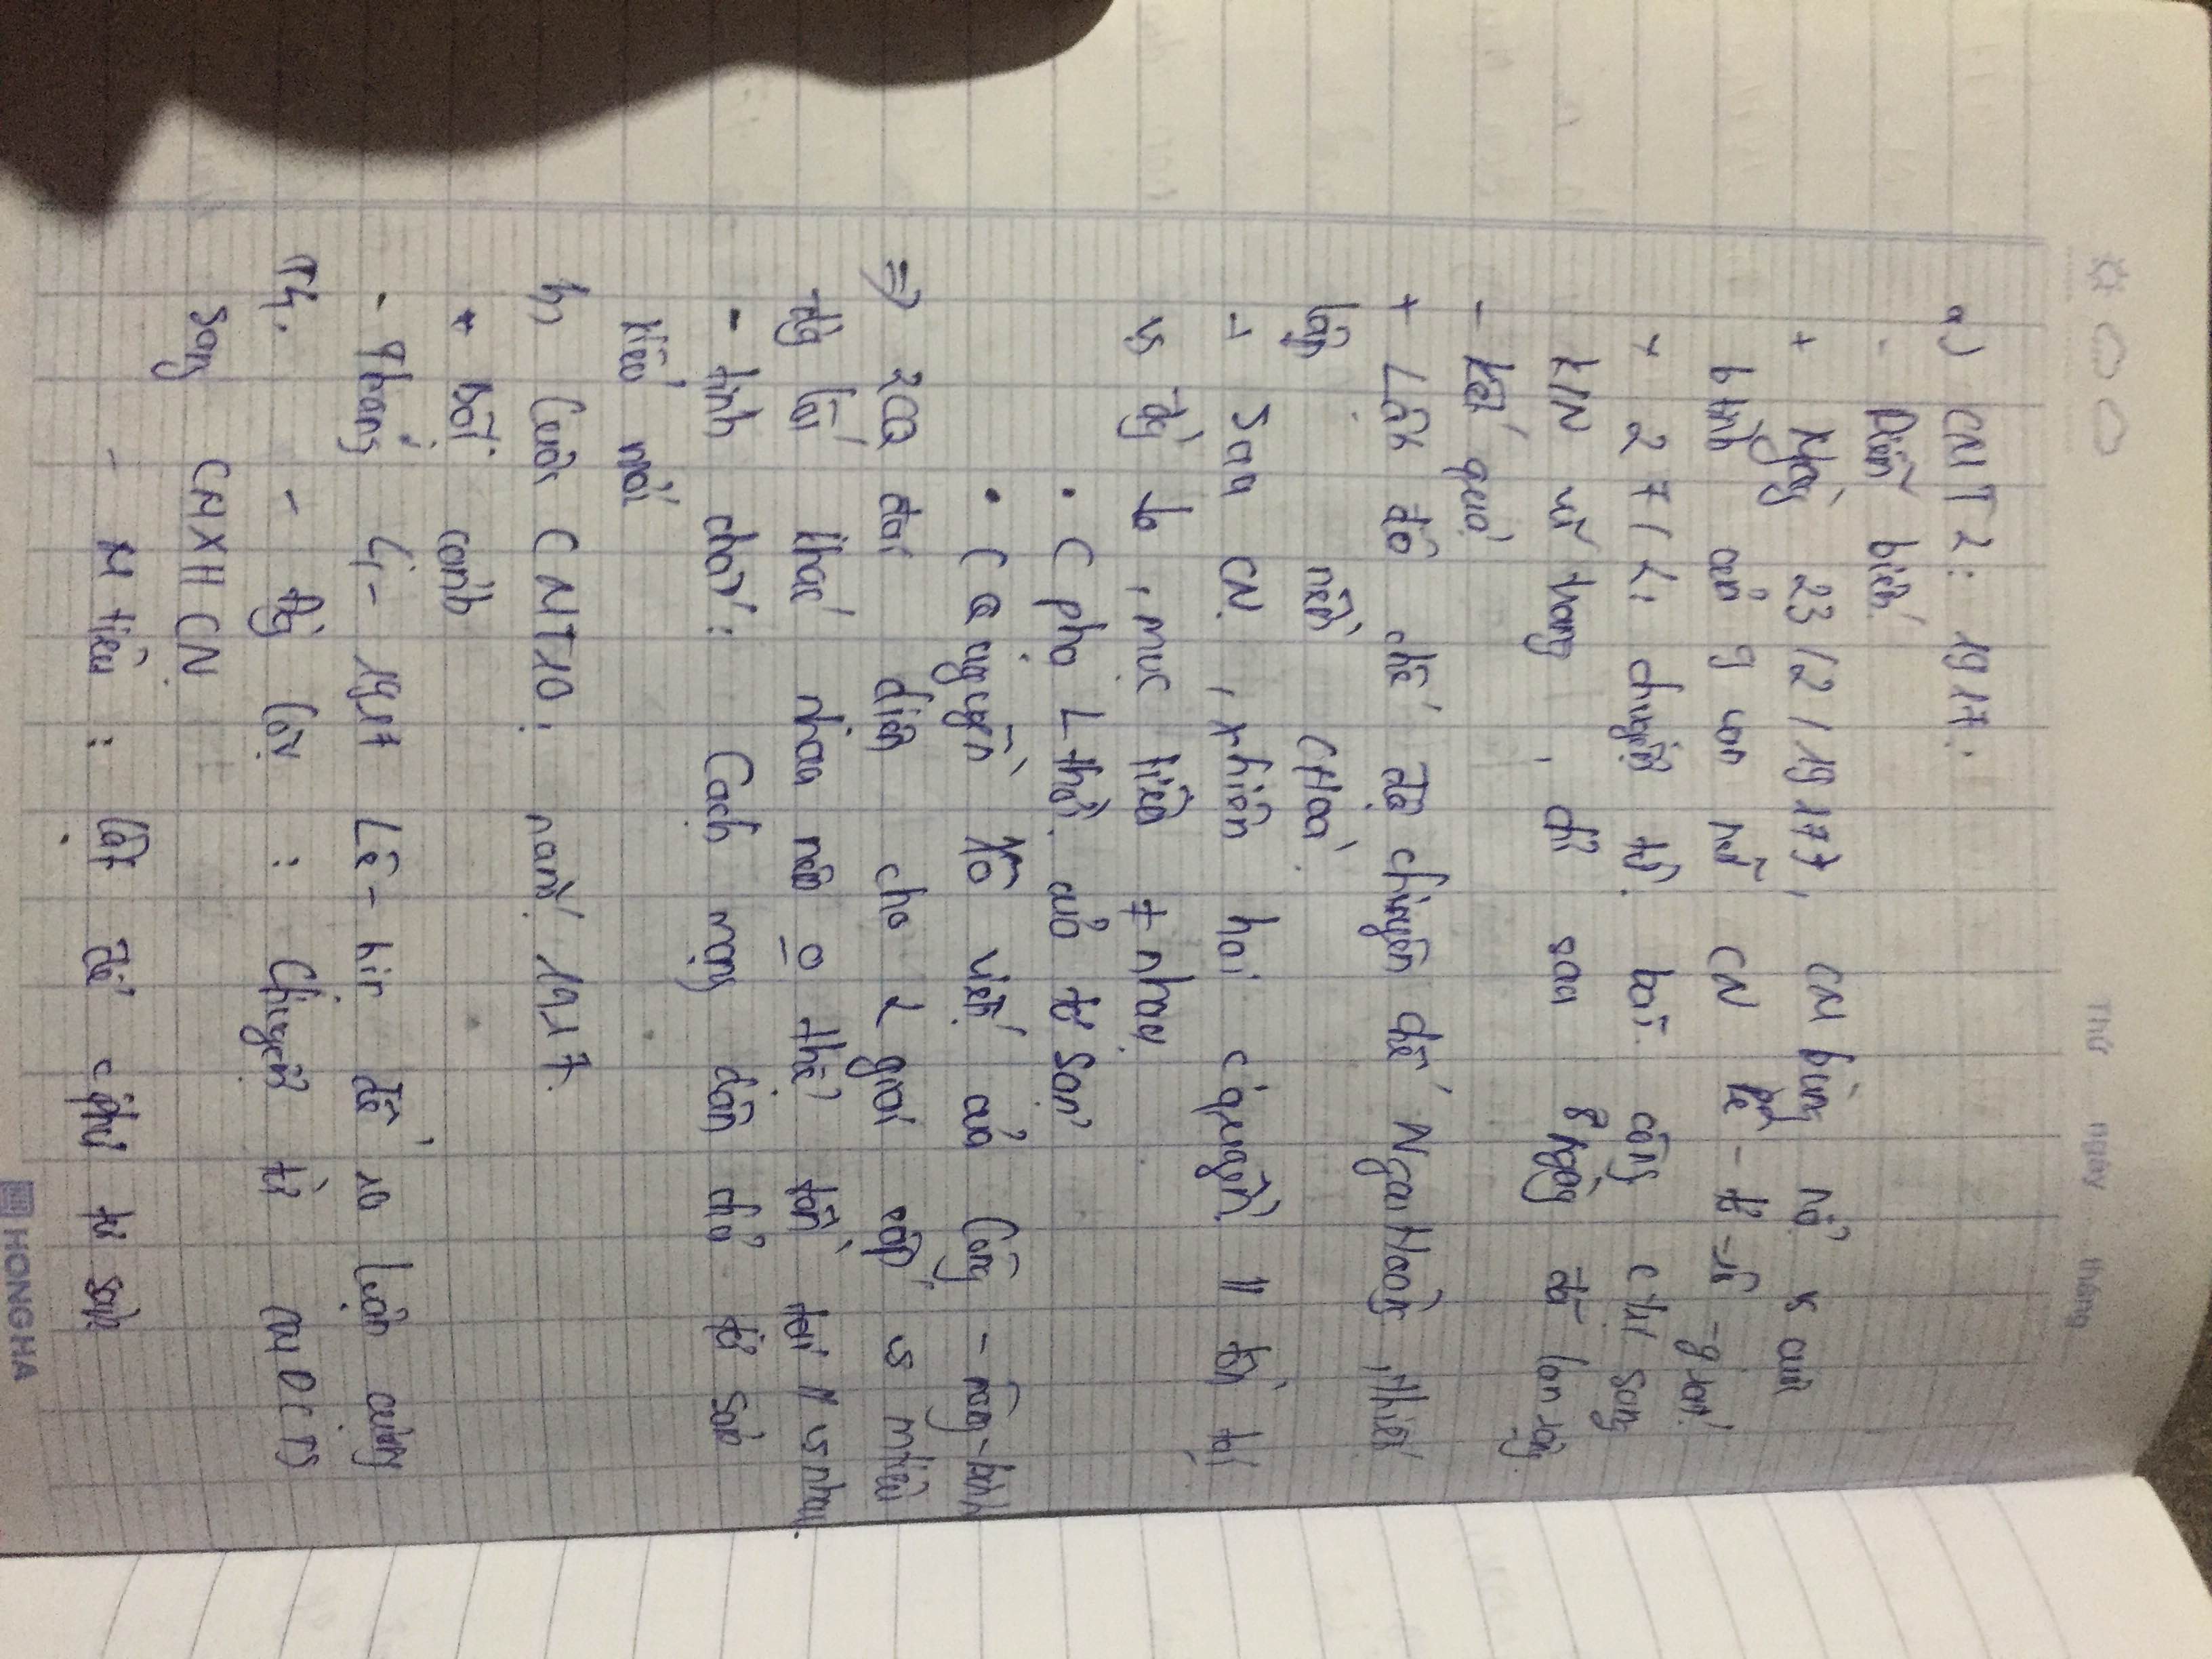 Thứ ngày tháng
a) CMT2: 1917:
- Diễn biến:
+ Ngày 23/2/1917, CM bùng nổ vs cuộc
b tình của 9 vạn nữ CN Pê-tơ-rô-grát.
+ 27/2: chuyển từ bãi công ctrị sang
KN vũ trang, chỉ sau 8 ngày đã lan rộng
- Kết quả
+ Lật đổ chế độ chuyên chế Nga Hoàng, thiết
lập nền CHòa.
- Sau CN, xhiện hai cquyền // tồn tại
vs đg lo, mục tiêu ≠ nhau.
• C phủ L thời của tư sản
• C Quyền Xô viết của Công - nông - binh
=> 2CQ đại diện cho 2 giai cấp vs mtiêu
đg lối khác nhau nên o thể tồn tại // vs nhau.
- tính chất: Cách mạng dân chủ tư sản
kiểu mới
b, Cuộc CMT10: năm 1917.
* Bối cảnh
- Tháng 4 - 1917 Lê-nin đề ra luận cương
T4.
- Đg lối: Chuyển từ CMDCTS
sang CMXHCN
- M tiêu: Lật đổ cphủ tư sản
HONG HA